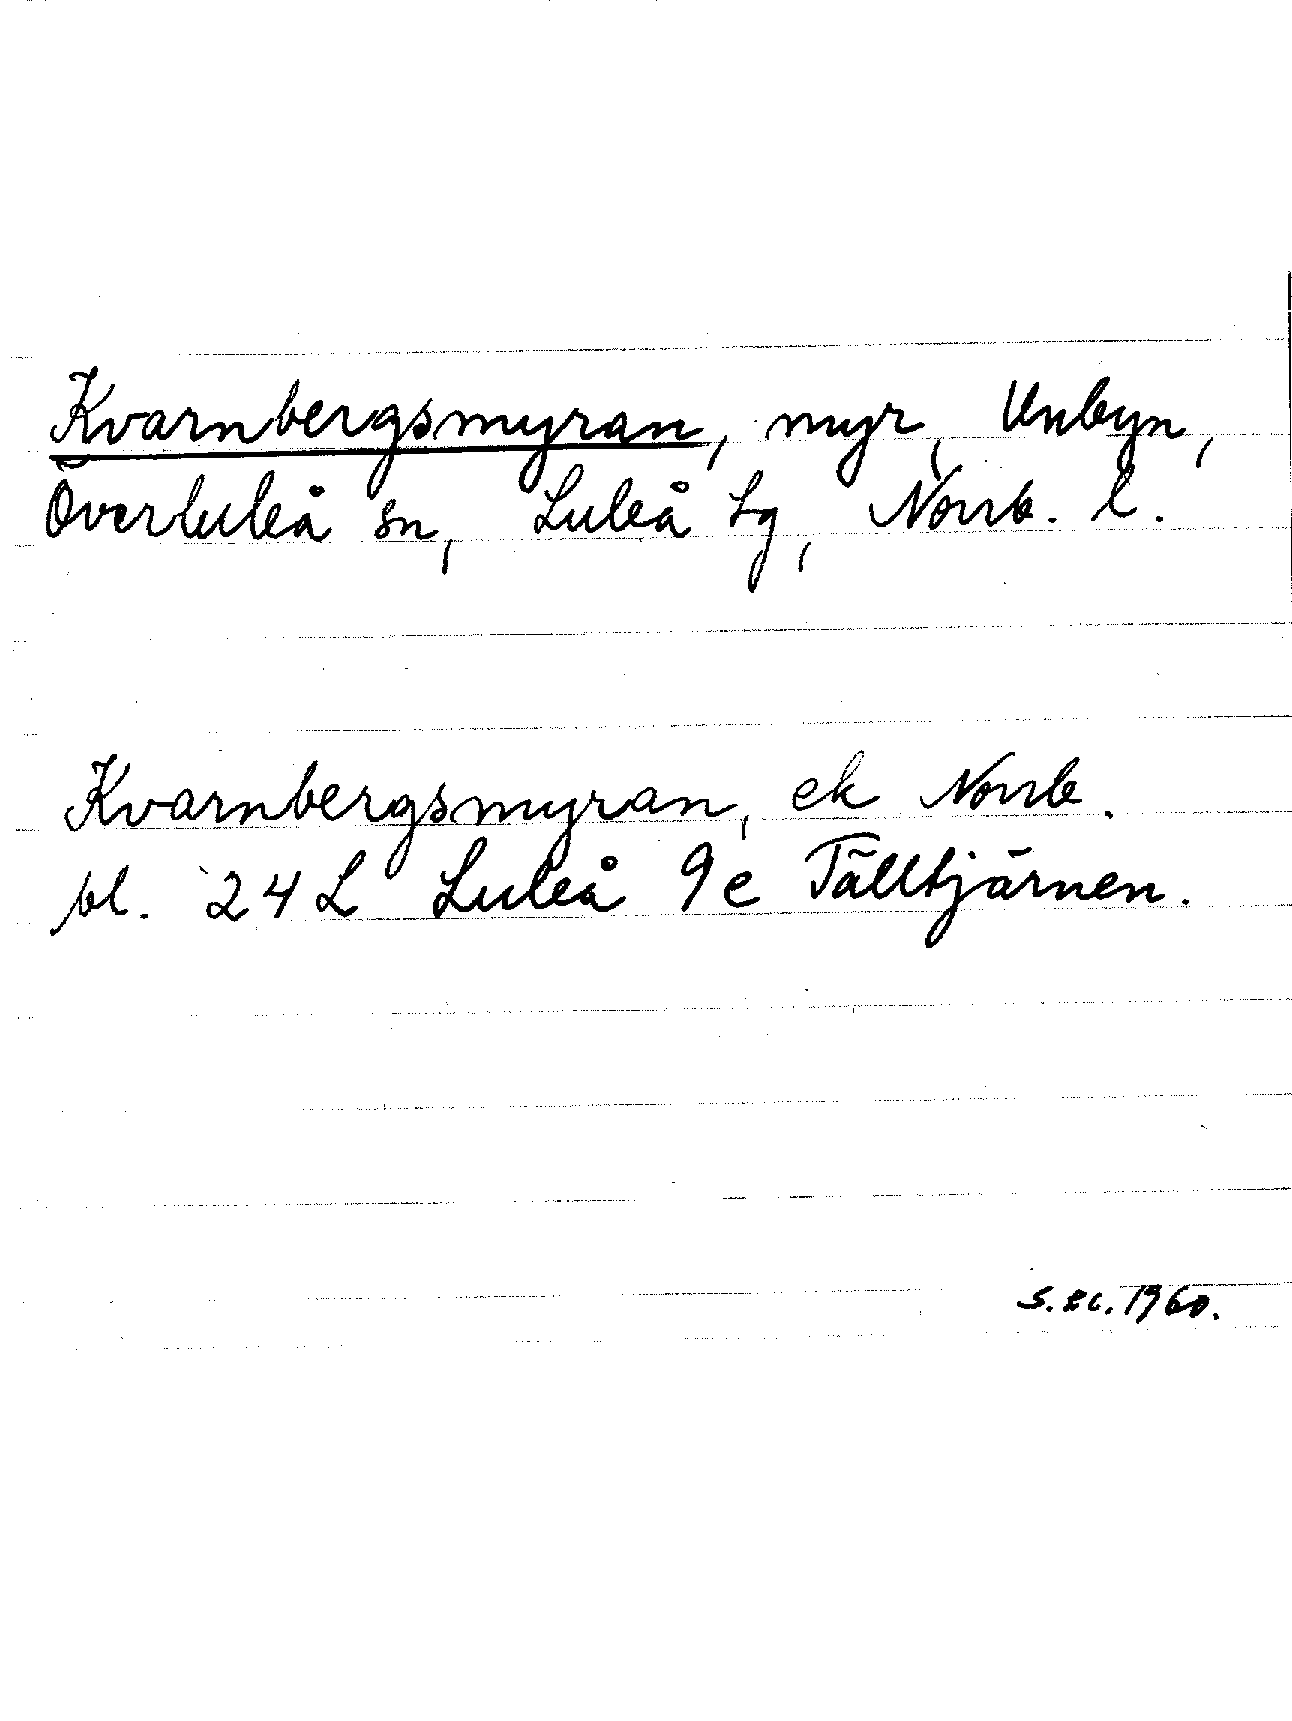 Kvarnbergsmyran, myr, Unbyn,
Överluleå sn, Luleå tg, Norrb. l.
Kvarnbergsmyran, ek Norrb.
bl. 24 L Luleå 9e Tälltjärnen.
S. Ec. 1960.